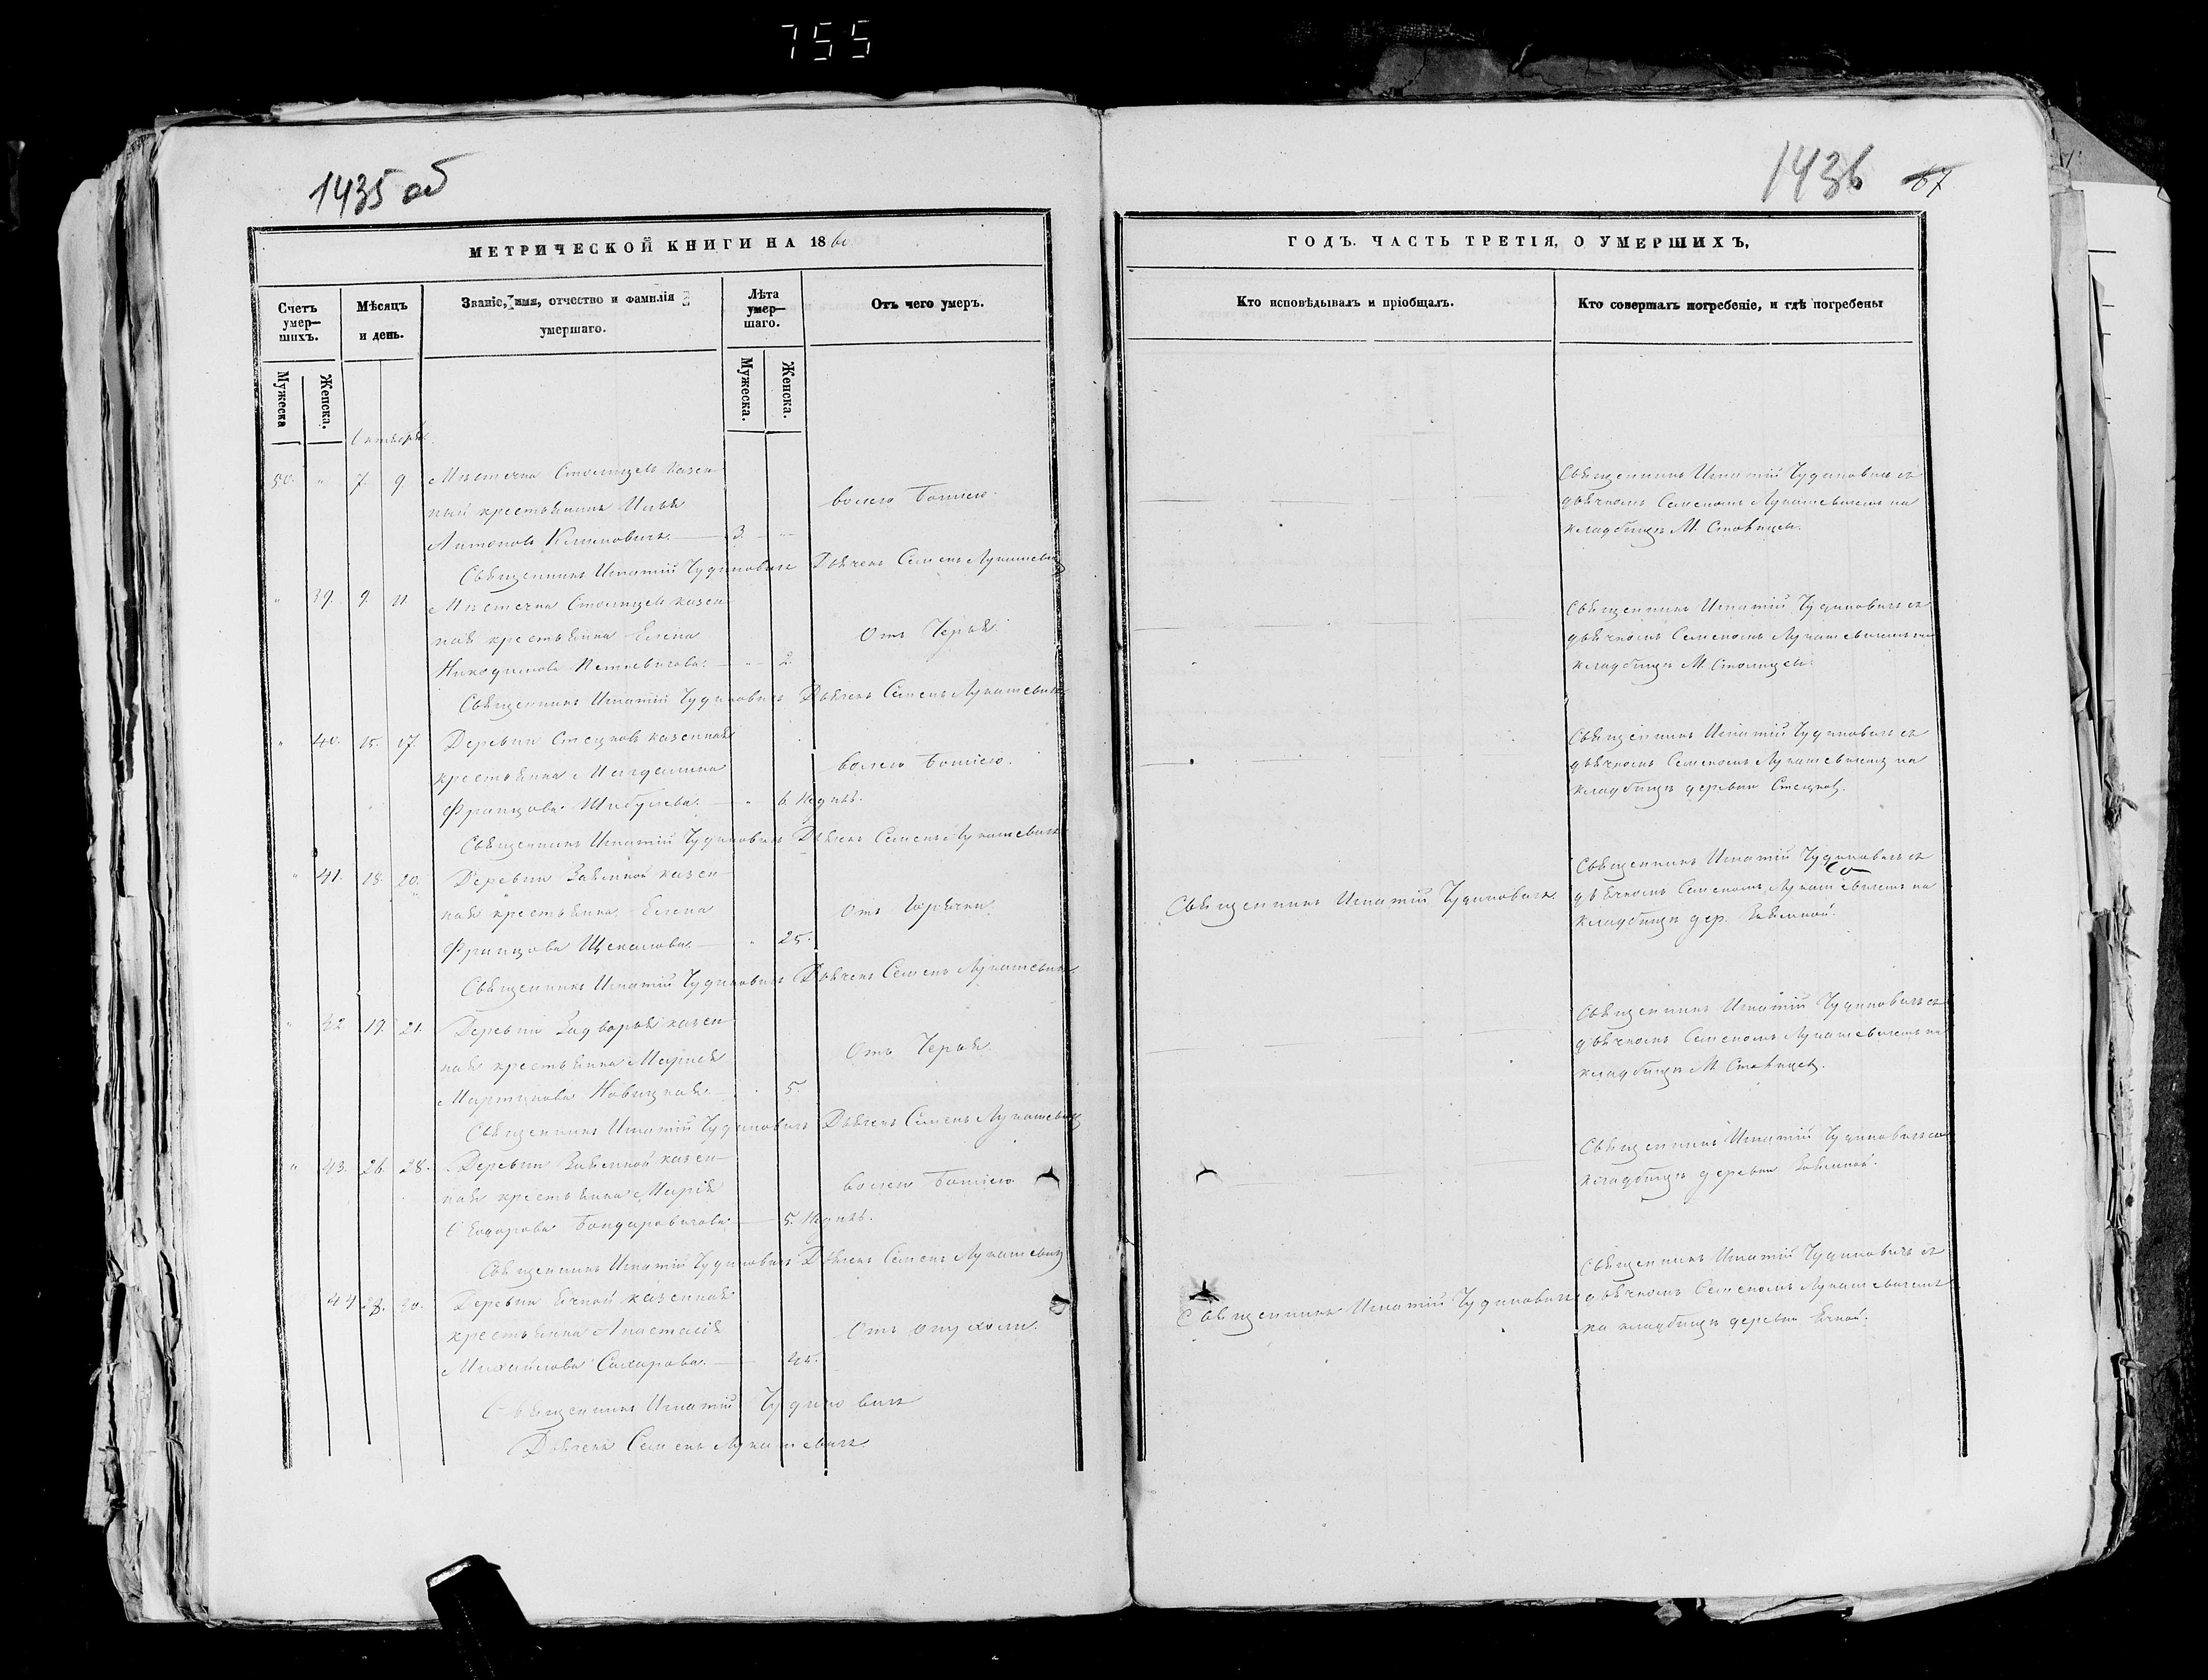 755
1435 об
МЕТРИЧЕСКОЙ КНИГИ НА 1860
Счетъ умер—шихъ.
Мѣсяцъ и день.
Званіе, имя, отчество и фамилія умершаго.
Лѣта умер—шаго.
Отъ чего умеръ.
Мужеска
Женска.
Мужеска.
Женска.
Октябрь
50. " 7. 9. Мѣстечка Столпцевъ казен
ный крестьянинъ Илья
волею Божіею.
Антоновъ Климовичъ. 3. "
Священникъ Игнатій Чудиновичъ Дьячекъ Семенъ Лукашевичъ
" 39. 9. 11. Мѣстечка Столпцевъ казен
ная крестьянка Елена
Отъ Черья.
Никодимова " 2.
Священникъ Игнатій Чудиновичъ Дьячекъ Семенъ Лукашевичъ
" 40. 15. 17. Деревни Стецковъ казенная
крестьянка Магдалина
волею Божіею.
Францова " 6. недѣль.
Священникъ Игнатій Чудиновичъ Дьячекъ Семенъ Лукашевичъ
" 41. 18. 20. Деревни Заямной казен
ная крестьянка Елена
Отъ Горячки
Францова Щекалова. " 25.
Священникъ Игнатій Чудиновичъ Дьячекъ Семенъ Лукашевичъ
" 42 19. 21. Деревни Задворья казен
ная крестьянка Марія
Отъ Черья
Мартинова Новицкая. 5.
Священникъ Игнатій Чудиновичъ Дьячекъ Семенъ Лукашевичъ
" 43. 26. 28. Деревни Заямной казен—
ная крестьянка Марія
волею Божіею
Ѳеодорова Бондаровичова 5. недѣль.
Священникъ Игнатій Чудиновичъ Дьячекъ Семенъ Лукашевичъ
44 28. 30. Деревни казенная
крестьянка Анастасія
Отъ опухоли.
Михайлова Сахарова. 45.
Священникъ Игнатій Чудиновичъ
Дьячекъ Семенъ Лукашевичъ
1436 67
ГОДЪ. ЧАСТЬ ТРЕТІЯ, О УМЕРШИХЪ,
Кто исповѣдывалъ и пріобщалъ.
Кто совершалъ погребеніе, и гдѣ погребены
Священникъ Игнатій Чудиновичъ съ
дьячкомъ Семеномъ Лукашевичемъ на
кладбищѣ М. Столпцевъ.
Священникъ Игнатій Чудиновичъ съ
дьячкомъ Семеномъ Лукашевичемъ на
кладбищѣ М. Столпцевъ.
Священникъ Игнатій Чудиновичъ съ
дьячкомъ Семеномъ Лукашевичемъ на
кладбищѣ деревни Стецковъ.
Священникъ Игнатій Чудиновичъ
Священникъ Игнатій Чудиновичъ съ
дьячкомъ Семеномъ Лукашевичемъ на
кладбищѣ дер. Заямной.
Священникъ Игнатій Чудиновичъ съ
дьячкомъ Семеномъ Лукашевичемъ на
кладбищѣ М. Столпцевъ.
Священникъ Игнатій Чудиновичъ на
кладбищѣ деревни Заямной.
Священникъ Игнатій Чудиновичъ
Священникъ Игнатій Чудиновичъ съ
дьячкомъ Семеномъ Лукашевичемъ
на кладбищѣ деревни